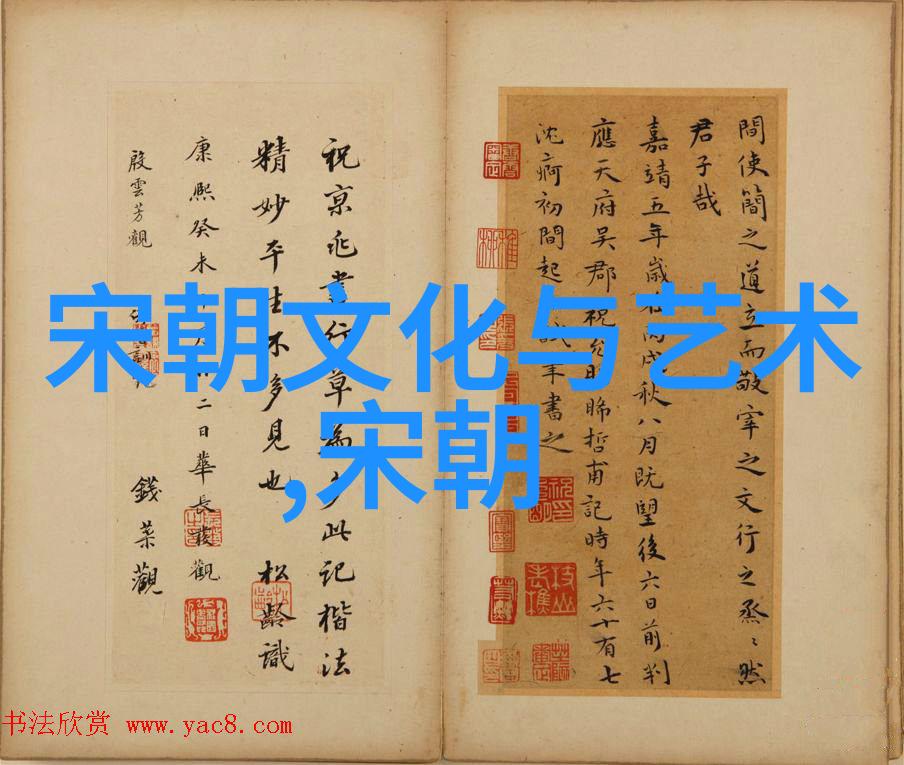 宋朝文化与艺术
,宋朝
間使簡之道立而敬宰之文行之烝〻然
君子哉
嘉靖五年歲在丙戌秋八月既朢後六日前判
應天府吳郡祝允明晞哲甫記時年六十有七
沈痾初間起試筆書之
祝京兆書行草為多此記楷法
精妙平生不多見也 松齡識
康熙癸未 二日華長發觀
殷雲芳觀
錢棻觀
书法欣赏 www.yac8.com